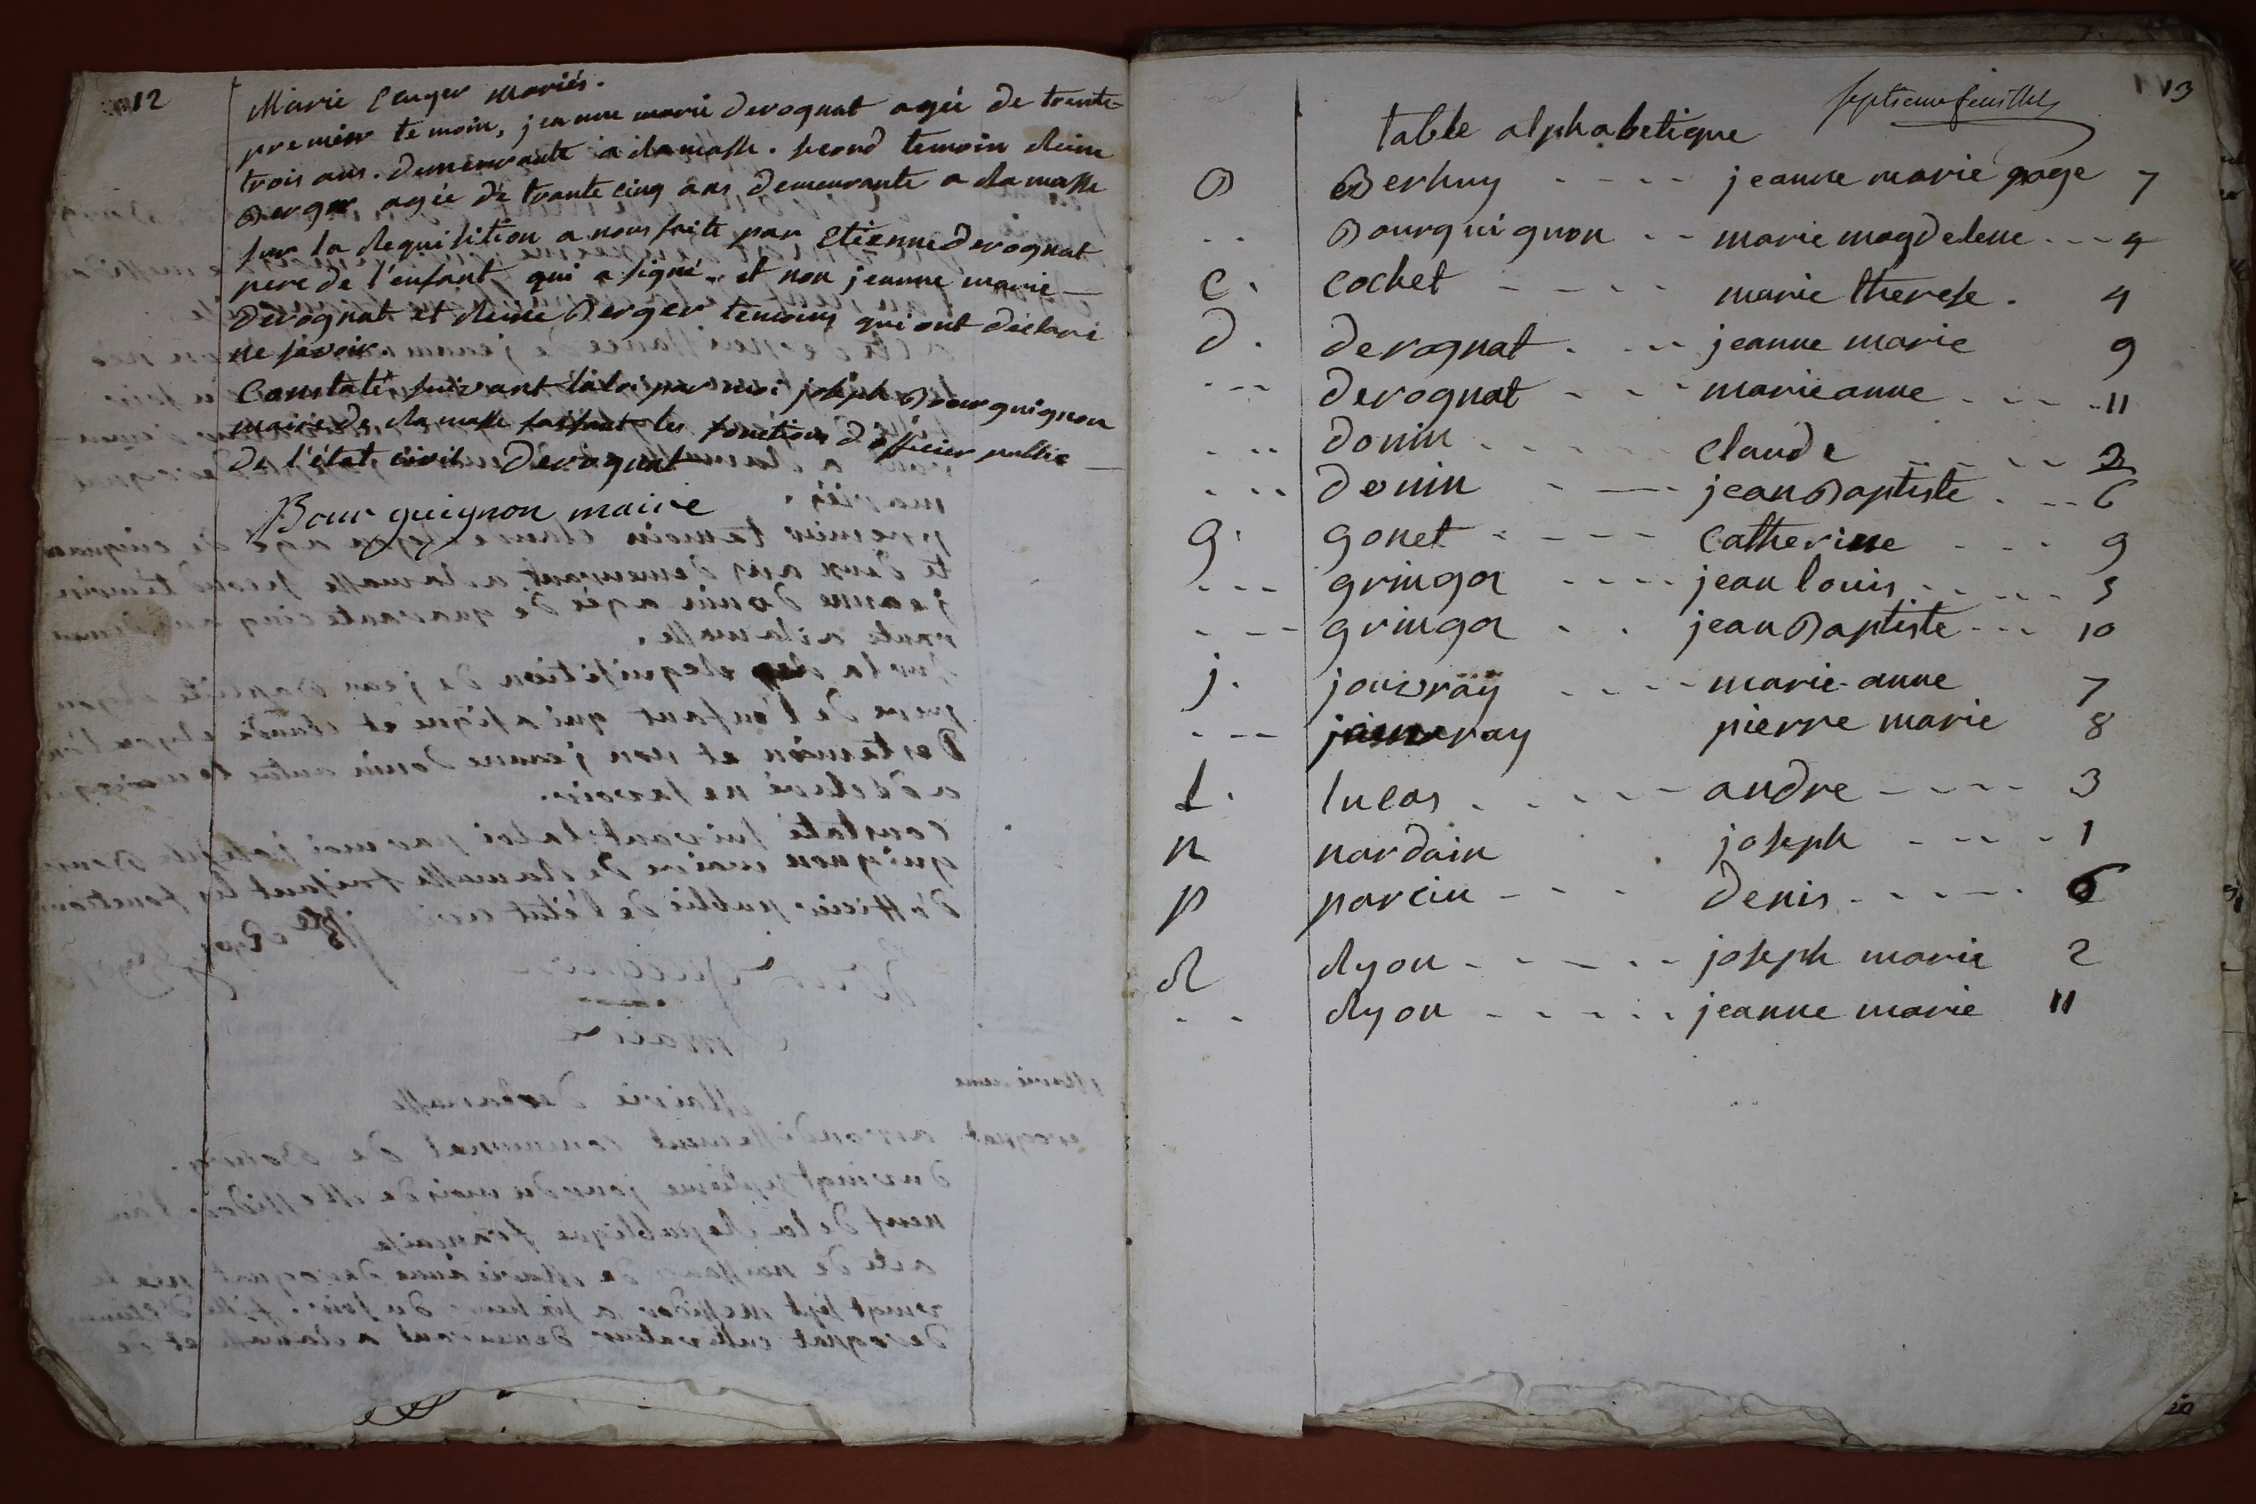 12
Marie mariés.
premier temoin, jeanne marie derognat agée de trente-
trois ans. demeurante a Ramasse. second temoin Reine
Berger agée de trante cinq ans demeurante a Ramasse
sur la Requisition a nous faite par etienne derognat
pere de l'enfant qui a signé. et non jeanne marie —
derognat et Reine Berger temoins qui ont déclaré
ne savoir
Constaté suivant la loi par moi joseph Bourguignon
maire de Ramasse faisant les fonctions d'officier public —
de l'état civil derognat
Bourguignon maire
13
septieme feuillet
table alphabetique
B Berhuy - - - - jeanne marie page 7
.. Bourguignon - - marie magdelene - - - 4
C. Cochet - - - - marie therese. 4
d. derognat. - - - jeanne marie 9
--- derognat - - - marie anne - - - 11
--- donin - - - - claude - - - - 2
--- donin - — jean Baptiste - - - 6
g. gonet - - - - catherine - - - 9
--- gringoz - - - - jean louis - - - - 5
--- gringoz - . jean Baptiste - - - 10
j. jouvray - - - - marie-anne 7
--- jouvray pierre marie 8
L. lucas - - - - - andre - - - - 3
n nardain joseph - - - - 1
p parcin - - - denis - - - - 6
R Ryon - - - - - joseph marie 2
- - Ryon - - - - - jeanne marie 11